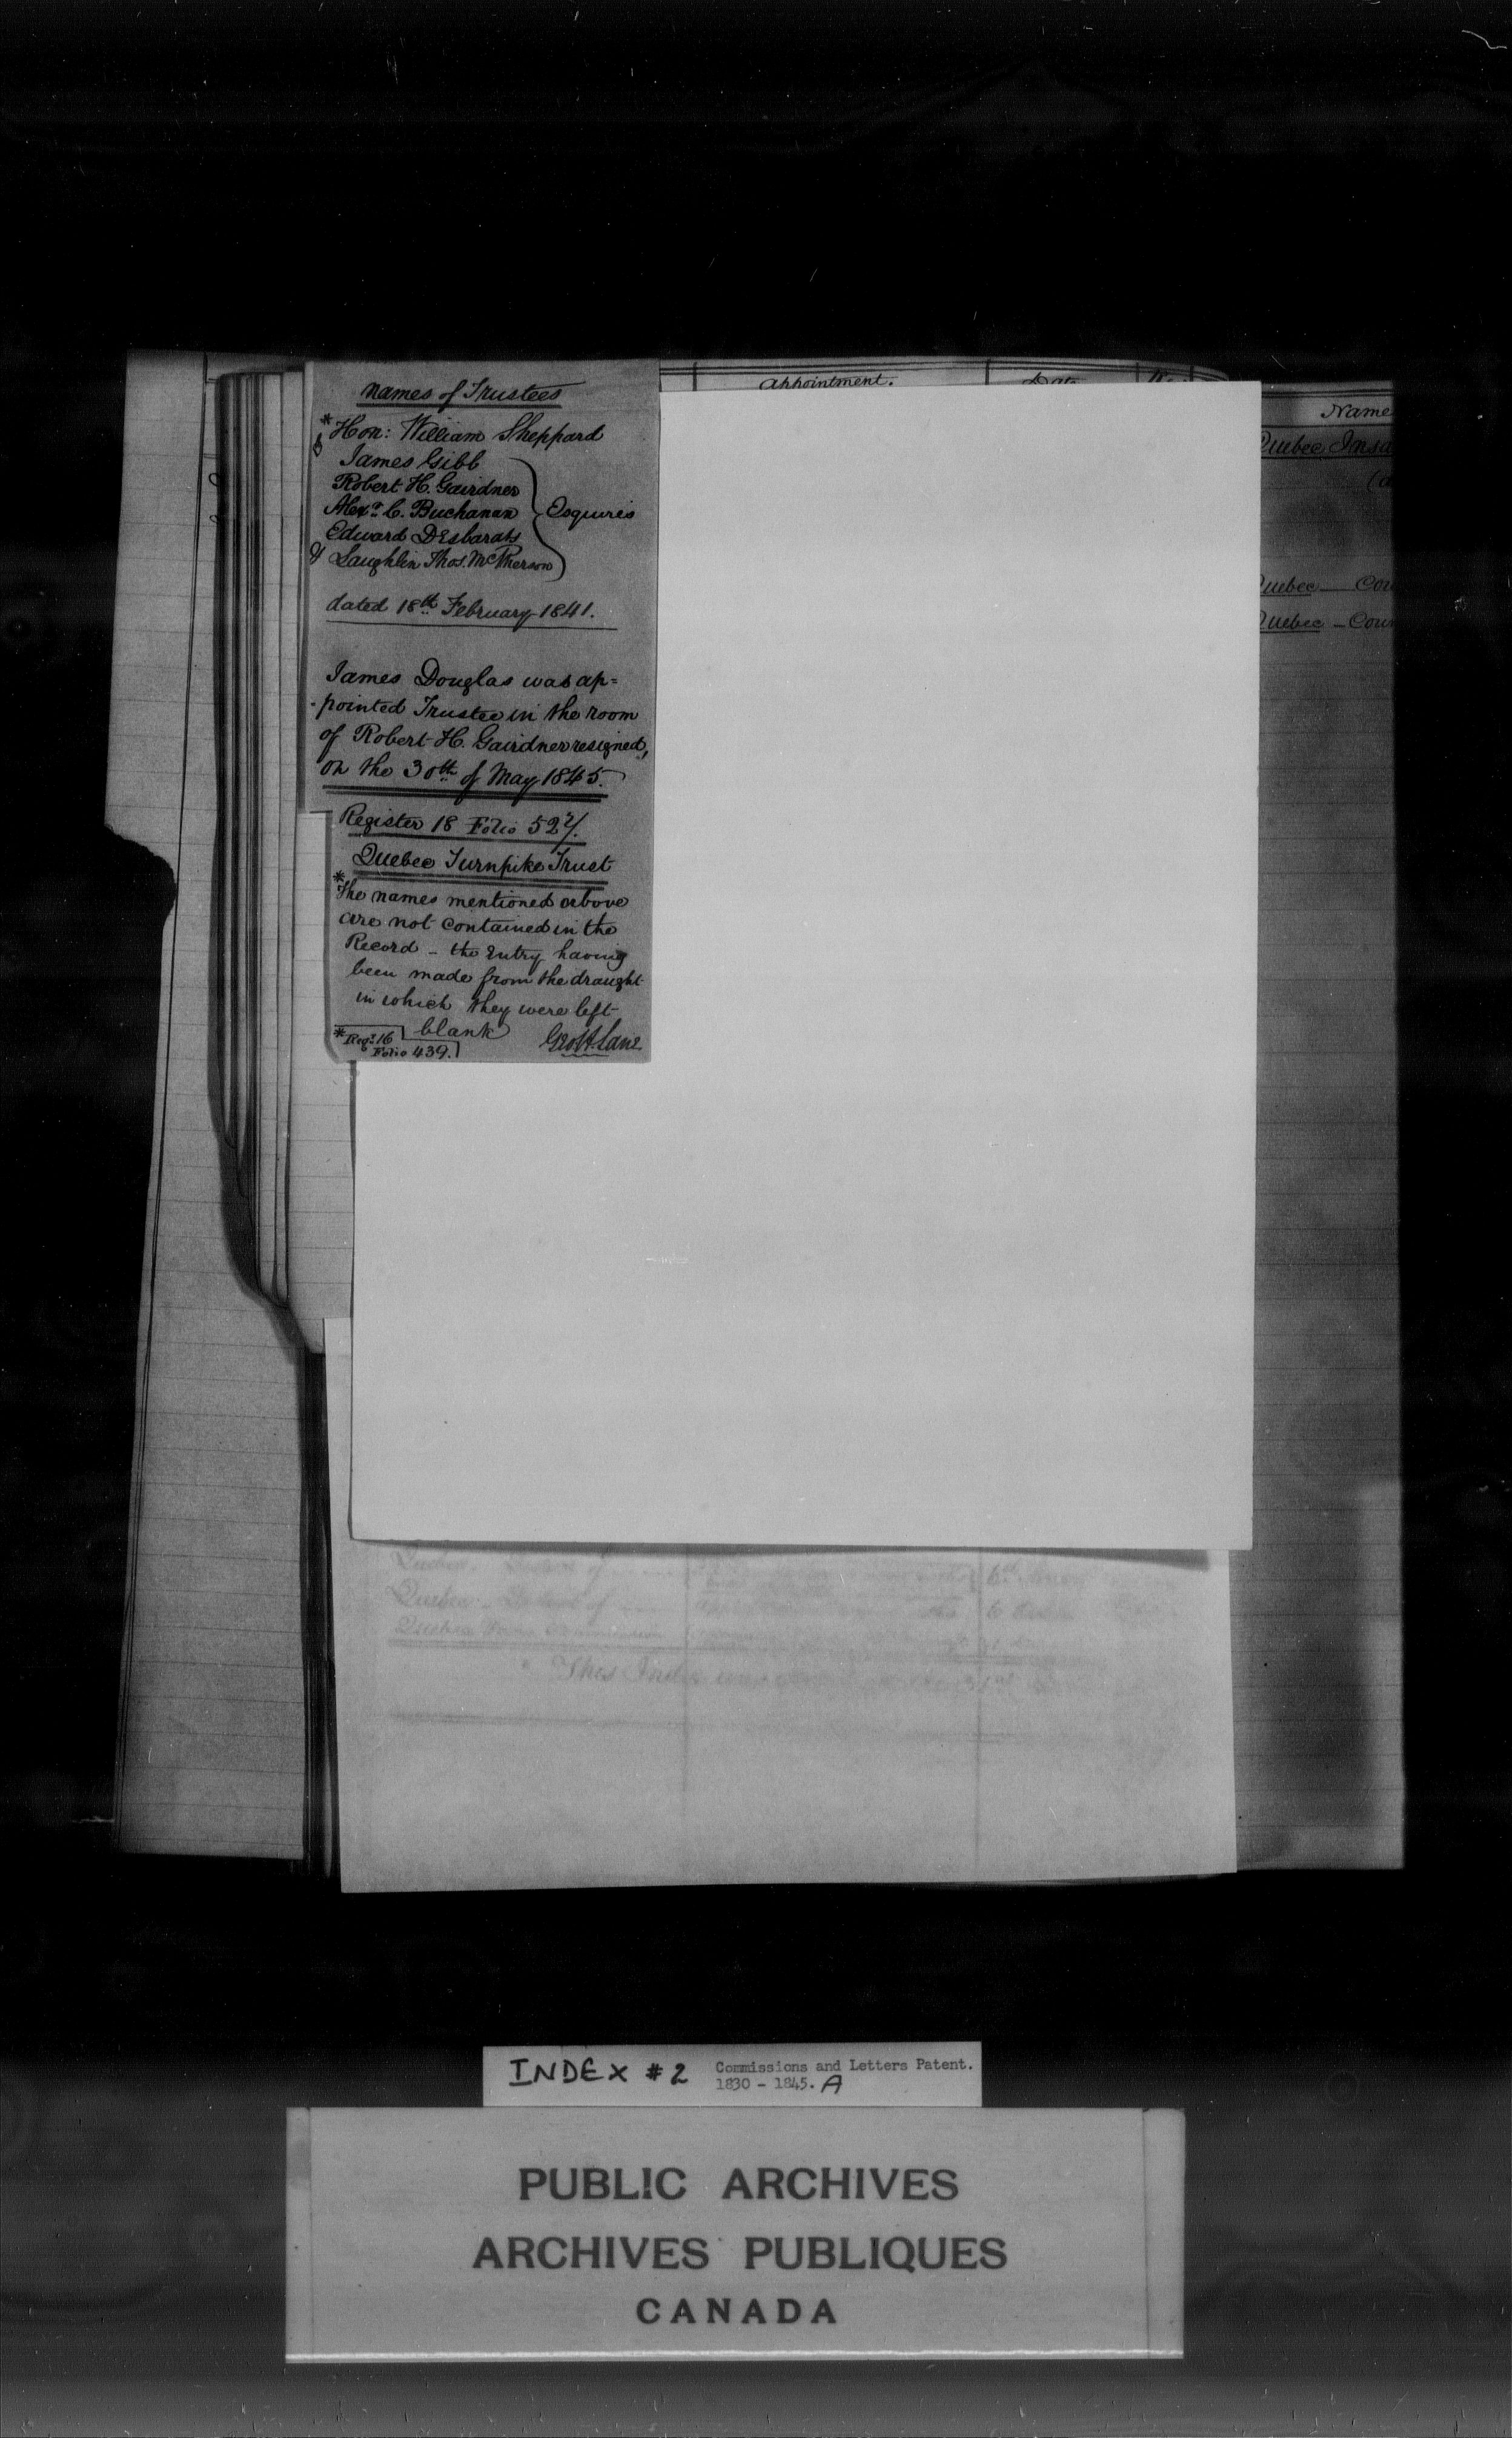 Names of Trustees
* Hon: William Sheppard
James Gibb
Robert H. Gairdner
Alexr. C. Buchanan } Esquires
Edward Desbarats
& Laughlin Thos. McPherson
dated 18th February 1841.
James Douglas was ap=
-pointed Trustee in the room
of Robert H. Gairdner resigned,
on the 30th of May 1845.
Register 18 Folio 527.
Quebec Turnpike Trust
* The names mentioned above
are not contained in the
Record - the Entry having
been made from the draught
in which they were left
blank
Geo H. Lane
* Regr. 16
Folio 439.
Appointment.
Date
Name
Quebec Insa
Quebec Cou
Quebec - Coun
Quebec
Quebec
6
This
INDEX #2 Commissions and Letters Patent.
1830 - 1845. A
PUBLIC ARCHIVES
ARCHIVES PUBLIQUES
CANADA